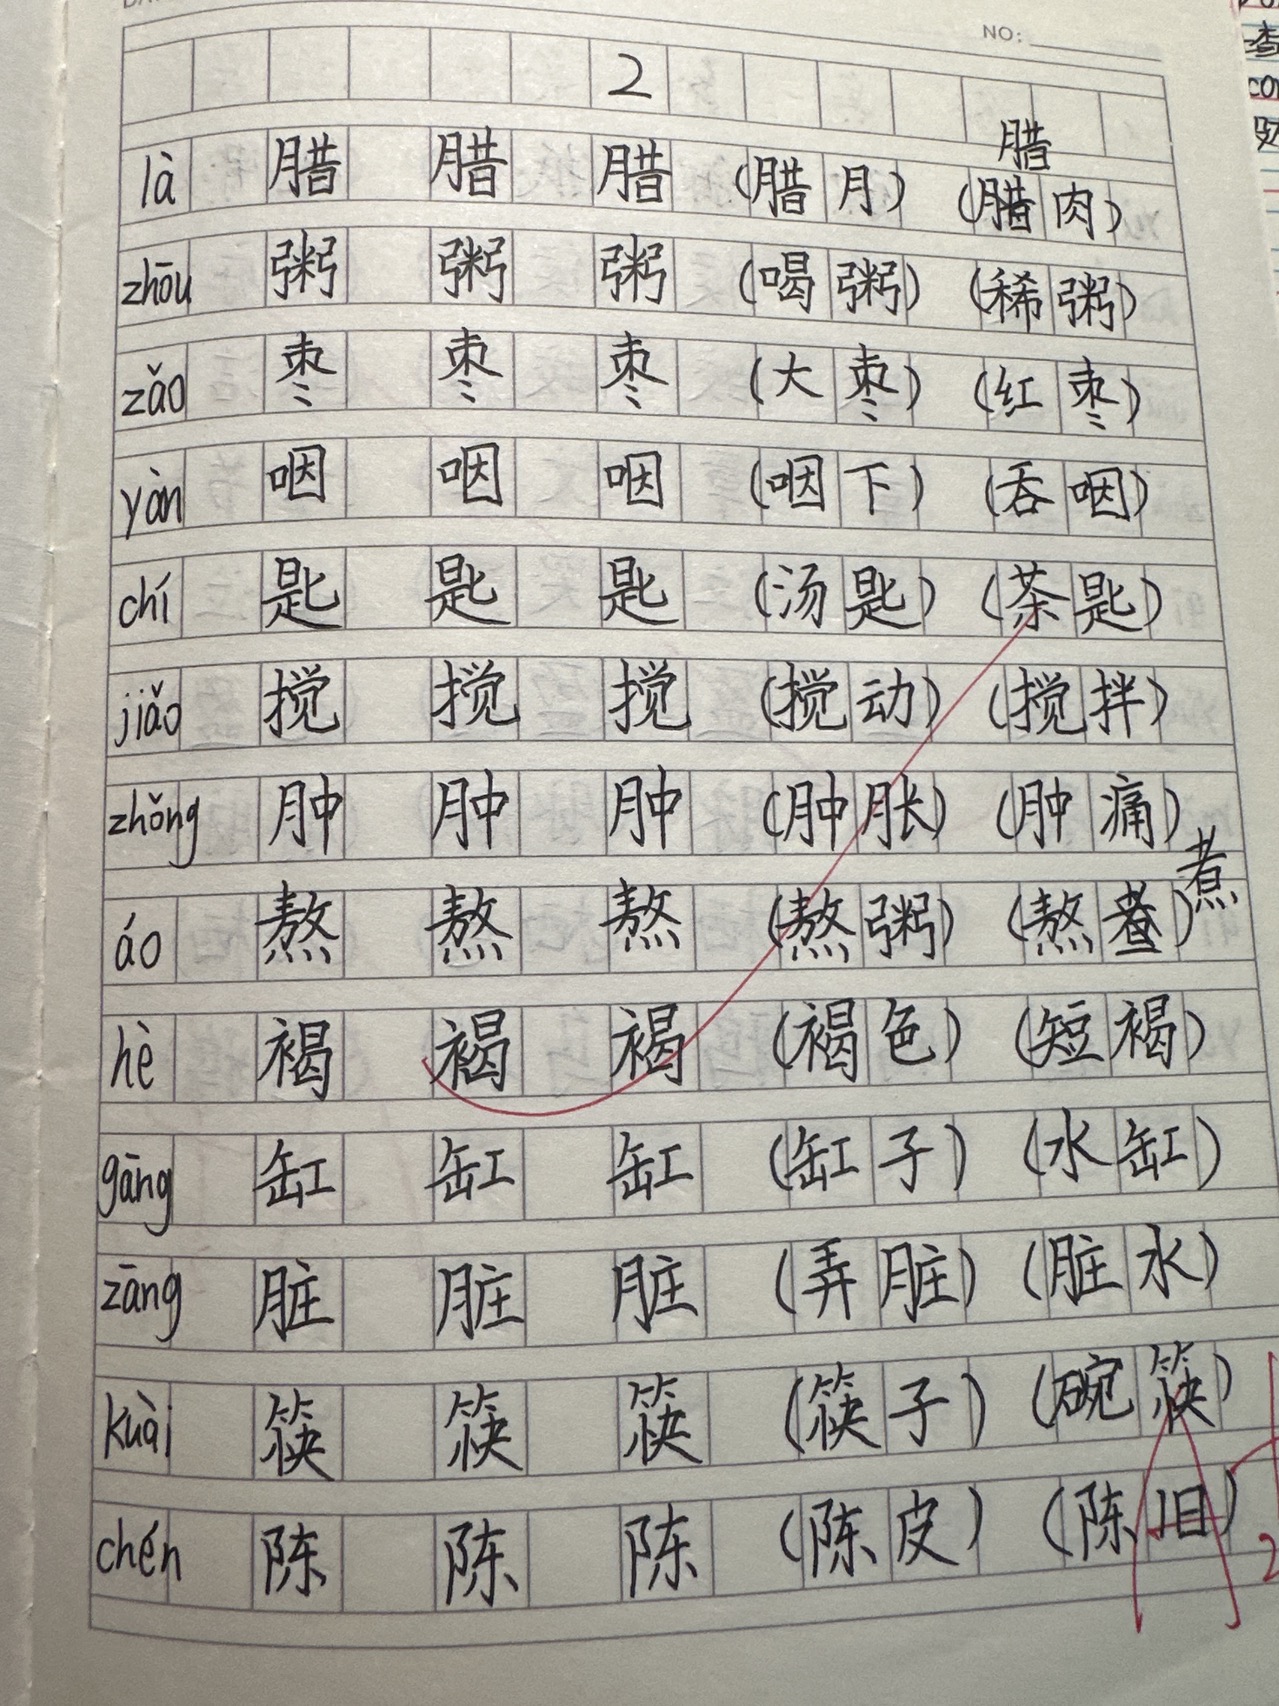 NO:
2
腊
là 腊 腊 腊 (腊月) (腊肉)
zhōu 粥 粥 粥 (喝粥) (稀粥)
zǎo 枣 枣 枣 (大枣) (红枣)
yàn 咽 咽 咽 (咽下) (吞咽)
chí 匙 匙 匙 (汤匙) (茶匙)
jiǎo 搅 搅 搅 (搅动) (搅拌)
zhǒng 肿 肿 肿 (肿胀) (肿痛)
煮
áo 熬 熬 熬 (熬粥) (熬)
hè 褐 褐 褐 (褐色) (短褐)
gāng 缸 缸 缸 (缸子) (水缸)
zāng 脏 脏 脏 (弄脏) (脏水)
kuài 筷 筷 筷 (筷子) (碗筷)
chén 陈 陈 陈 (陈皮) (陈旧)